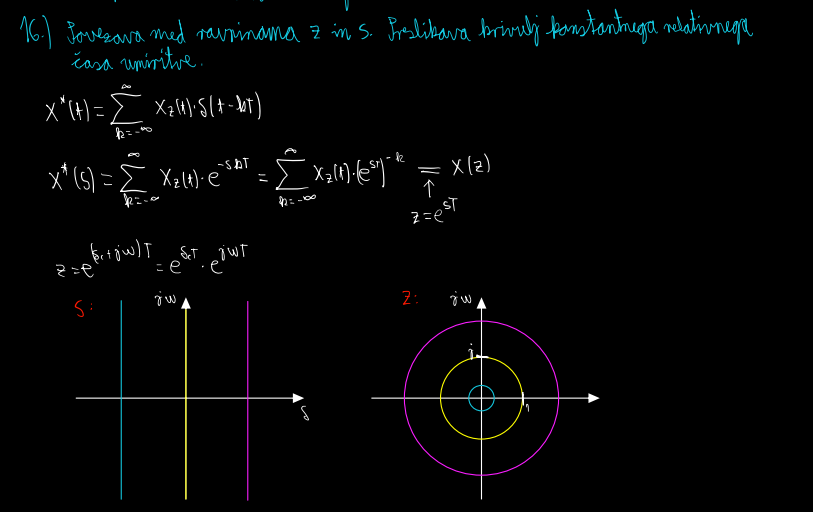 16.) Povezava med ravninama z in s. Preslikava krivulj konstantnega relativnega
časa umiritve.
X*(t) = ∑_{k=-∞}^{∞} X_z(t)·δ(t-kT)
X*(s) = ∑_{k=-∞}^{∞} X_z(t)·e^{-skT} = ∑_{k=-∞}^{∞} X_z(t)·(e^{sT})^{-k} = X(z)
↑
z=e^{sT}
z=e^{(δ_r+jω)T} = e^{δ_rT}·e^{jωT}
S: jω
Z: jω
j
1
δ